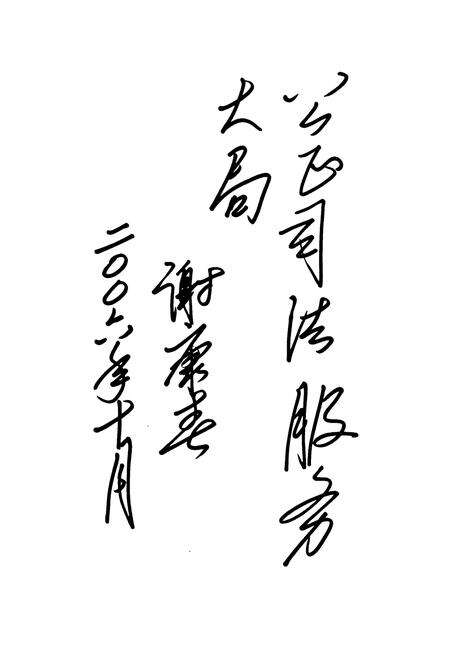 公正司法服务
大局
谢康春
二〇〇六年十月